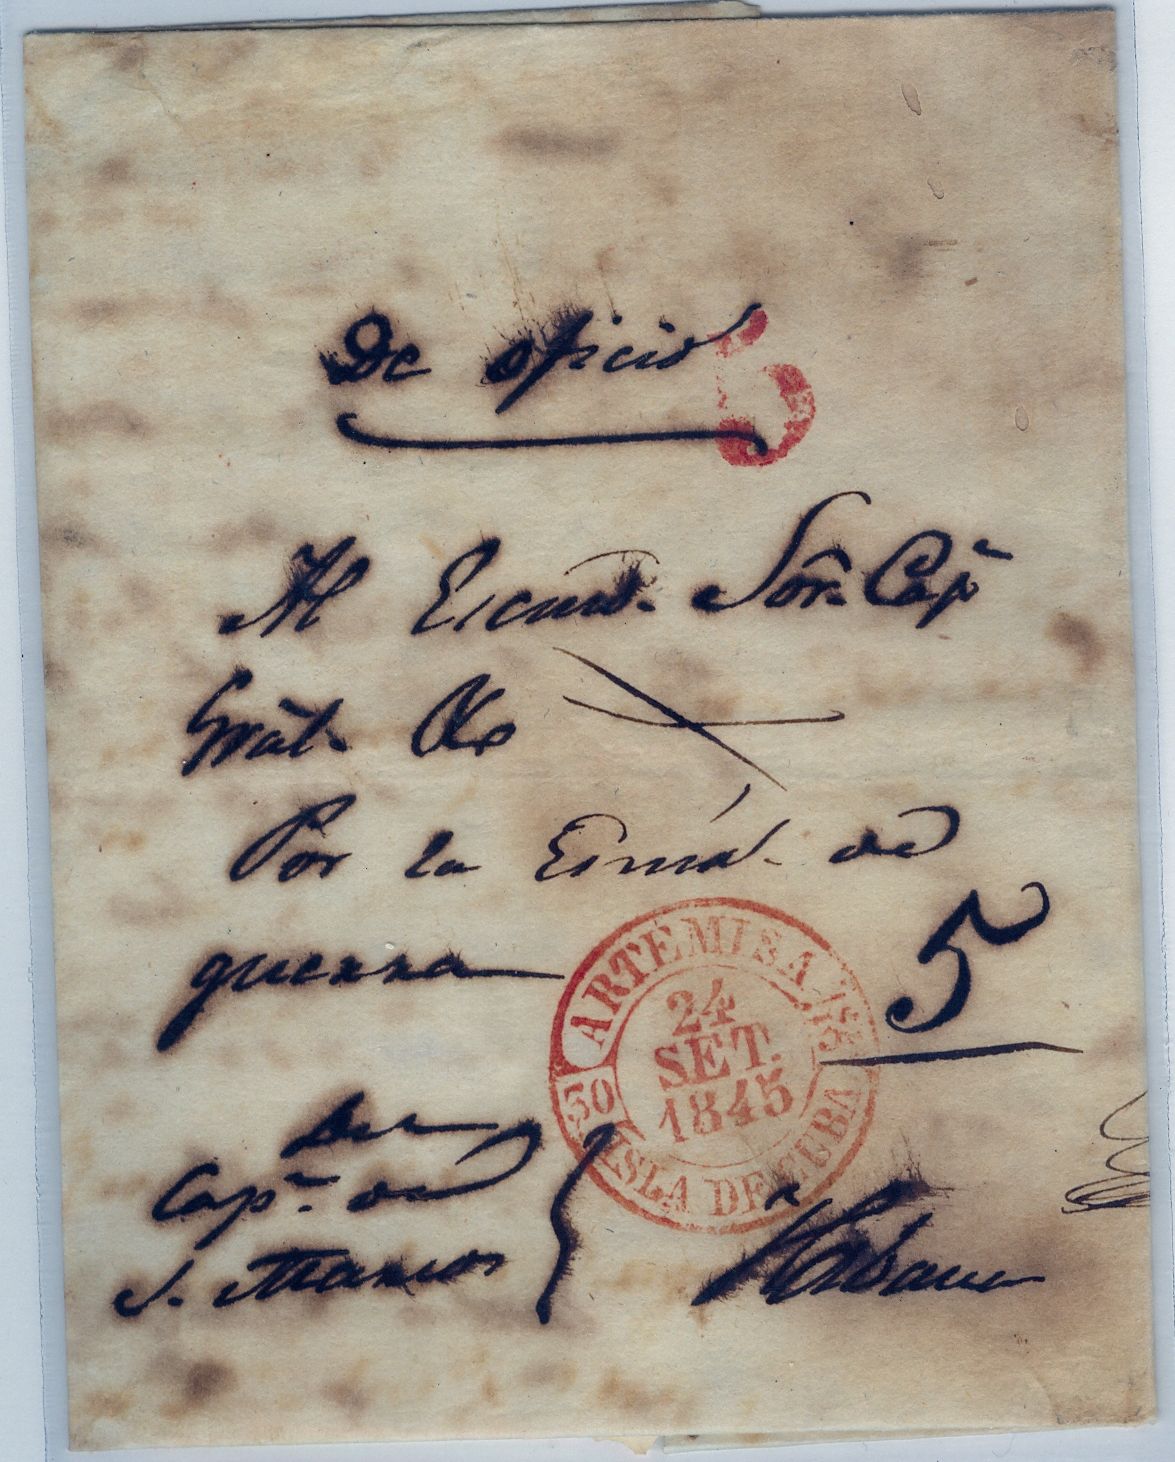 De oficio
5
Al Escmo. Sor. Capn
Gral. &a
Por la Escriba. de
guerra
5
ARTEMISA
24
SET.
1845
30
ISLA DE CUBA
Del
Capn. de
S. Marcos
Habana